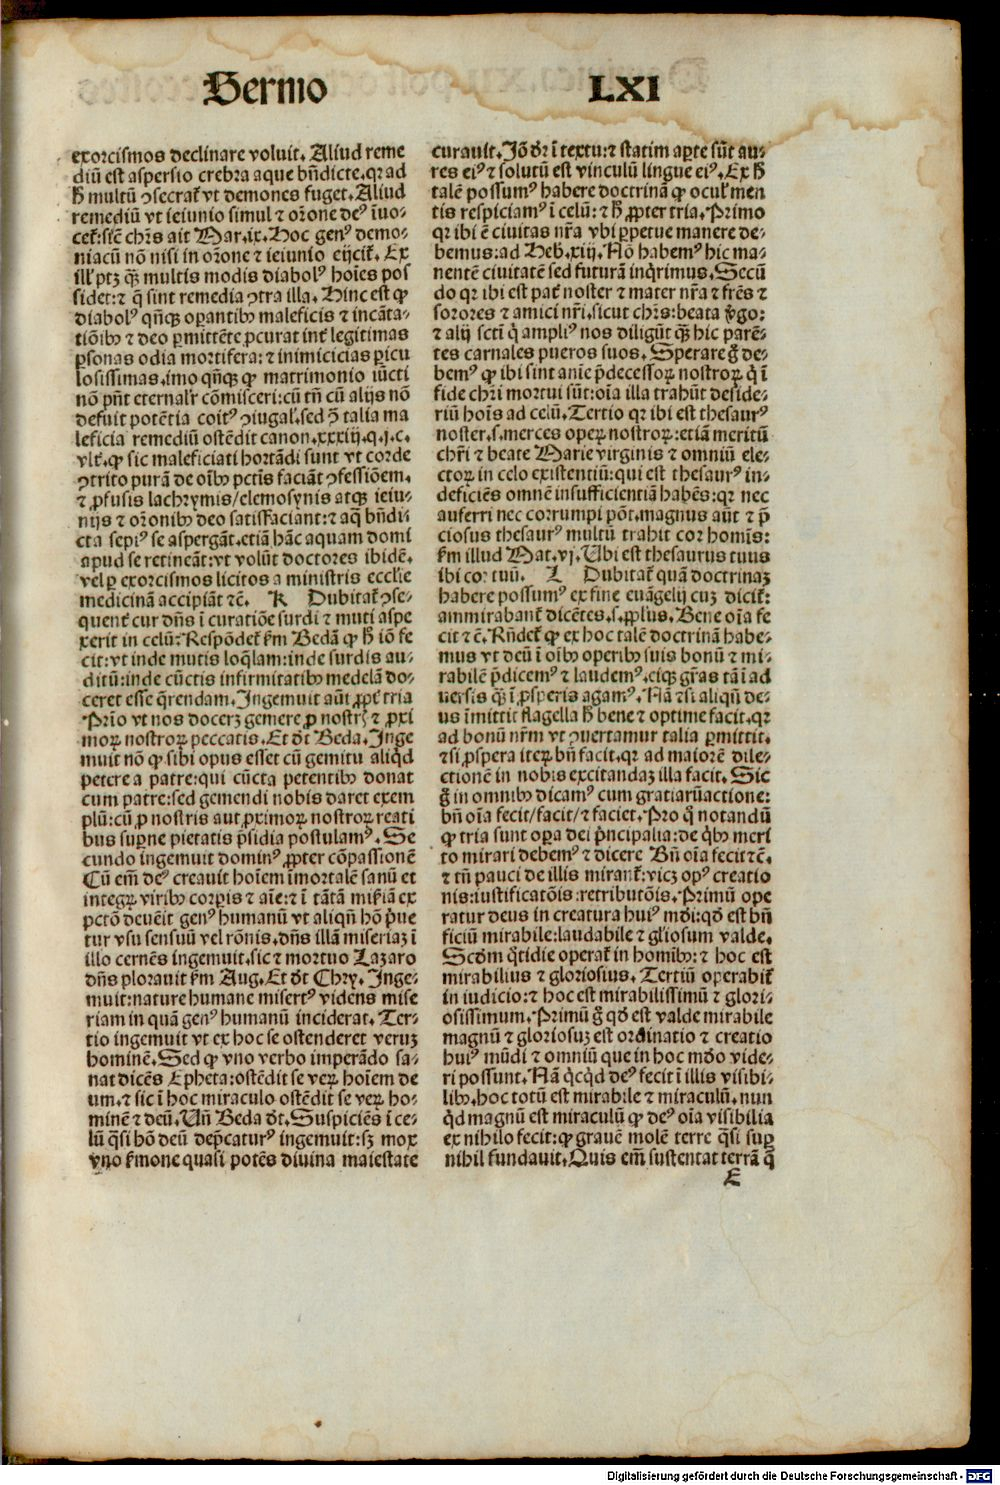 Sermo LXI
exorcismos declinare voluit. Aliud reme
diū est aspersio crebra aque bn̄dicte. qr ad
h̄ multū ↄsecrat᷑ vt demones fuget. Aliud
remediū vt ieiunio simul ⁊ or̄one deꝰ īuo-
cet᷑: sic̄ chr̄s ait Mar. ix. Hoc genꝰ demo-
niacū nō nisi in or̄one ⁊ ieiunio eijcit᷑. Ex
ill' ptꝫ qꝫ̄ multis modis diabolꝰ hoīes pos
sidet: ⁊ q̄ sint remedia ↄtra illa. Hinc est ꝙ
diabolꝰ qn̄qꝫ oꝑantibꝰ maleficis ⁊ incāta-
tiōibꝰ ⁊ deo ꝑmittēte ꝓcurat int᷑ legitimas
ꝑsonas odia mortifera: ⁊ inimicicias ꝑicu
losissimas. imo qn̄qꝫ ꝙ matrimonio iūcti
nō pn̄t eternal'r cōmisceri: cū tn̄ cū alijs nō
defuit potētia coitꝰ ↄiugal'. sed ↄ̄ talia ma
leficia remediū ostēdit canon. xxxiij. q. j. c.
vlt᷑. ꝙ sic maleficiati hortādi sunt vt corde
ↄtrito purā de oībꝰ pctīs faciāt ↄfessiōem.
⁊ ꝓfusis lachrymis/elemosynis atqꝫ ieiu-
nijs ⁊ or̄onibꝰ deo satisfaciant: ⁊ aq̄ bn̄di-
cta sepiꝰ se aspergāt. etiā hāc aquam domi
apud se retineāt: vt volūt doctores ibidē.
vel ꝑ exorcismos licitos a ministris eccl̄ie
medicinā accipiāt ⁊c̄. K Dubitat᷑ ↄse-
quent᷑ cur dn̄s ī curatiōe surdi ⁊ muti aspe
xerit in celū: Respōdet᷑ s̄m Bedā ꝙ h̄ iō fe
cit: vt inde mutis loq̄lam: inde surdis au-
ditū: inde cūctis infirmitatibꝰ medelā do-
ceret esse q̄rendam. Ingemuit aūt ꝓpt᷑ tria
Prīo vt nos docerꝫ gemere ꝓ nostrꝭ ⁊ ꝓxi
moꝝ nostroꝝ peccatis. Et d̄t Beda. Inge
muit nō ꝙ sibi opus esset cū gemitu aliq̄d
petere a patre: qui cūcta petentibꝰ donat
cum patre: sed gemendi nobis daret exem
plū: cū ꝓ nostris aut ꝓximoꝝ nostroꝝ reati
bus suꝑne pietatis p̄sidia postulamꝰ. Se
cundo ingemuit dominꝰ ꝓpter cōpassionē
Cū em̄ deꝰ creavit hoīem īmortalē sanū et
integꝝ viribꝰ corꝑis ⁊ aīe: ⁊ ī tātā mis̄iā ex
pctō deuēit genꝰ humanū vt aliqn̄ hō p̄ue
tur vsu sensuū vel rōnis. dn̄s illā miseriaꝫ ī
illo cernēs ingemuit. sic ⁊ mortuo Lazaro
dn̄s plorauit s̄m Aug. Et d̄t Chry. Inge-
muit: nature humane misertꝰ videns mise
riam in quā genꝰ humanū inciderat. Ter-
tio ingemuit vt ex hoc se ostenderet veruꝫ
hominē. Sed ꝙ vno verbo imperādo sa-
nat dicēs Epheta: ostēdit se veꝝ hoīem de
um. ⁊ sic ī hoc miraculo ostēdit se veꝝ ho-
minē ⁊ deū. Vn̄ Beda d̄t. Suspiciēs ī ce-
lū q̄si hō deū dep̄catur̄ꝰ ingemuit: sꝫ mox
vno s̄mone quasi potēs diuina maiestate
curauit. Iō dr̄ ī textu: ⁊ statim aꝑte sūt au-
res eiꝰ ⁊ solutū est vinculū lingue eiꝰ. Ex h̄
talē possumꝰ habere doctrinā ꝙ ocul' men
tis respiciamꝰ ī celū: ⁊ h̄ ꝓpter tria. Primo
qr ibi ē ciuitas nr̄a vbi ꝑpetue manere de-
bemus: ad Heb. xiij. Nō habemꝰ hic ma-
nentē ciuitatē sed futurā inq̄rimus. Secū
do qr ibi est pat᷑ noster ⁊ mater nr̄a ⁊ fr̄es ⁊
sorores ⁊ amici nr̄i. sicut chr̄s: beata v̄go:
⁊ alij sctī q̄ ampliꝰ nos diligūt qꝫ̄ hic parē-
tes carnales pueros suos. Sperare g̊ de-
bemꝰ ꝙ ibi sint anīe p̄decessoꝝ nostroꝝ q̄ ī
fide chr̄i mortui sūt: oīa illa trahūt deside-
riū hoīs ad celū. Tertio qr ibi est thesaurꝰ
noster. s. merces opeꝝ nostroꝝ: etiā meritū
chr̄i ⁊ beate Marie virginis ⁊ omniū ele-
ctoꝝ in celo existentiū: qui est thesaurꝰ in-
deficiēs omnē insufficientiā habēs: qr nec
auferri nec corrumpi pōt. magnus aūt ⁊ p̄
ciosus thesaurꝰ multū trahit cor homīs:
s̄m illud Mat. vj. Vbi est thesaurus tuus
ibi cor tuū. L Dubitat᷑ quā doctrinaꝫ
habere possumꝰ ex fine euāgelij cuꝫ dicit᷑:
ammirabant᷑ dicētes. s. ppl'us. Bene oīa fe
cit ⁊c̄. Rn̄det᷑ ꝙ ex hoc talē doctrinā habe-
mus vt deū ī oībꝰ operibꝰ suis bonū ⁊ mi-
rabilē p̄dicemꝰ ⁊ laudemꝰ. eiqꝫ gr̄as tā ī ad
uersis qꝫ̄ ī ꝓsperis agamꝰ. Nā ⁊si aliqn̄ de-
us īmittit flagella h̄ bene ⁊ optime facit. qr
ad bonū nr̄m vt ↄuertamur talia ꝑmittit.
⁊si ꝓspera iteꝝ bn̄ facit. qr ad maiorē dile-
ctionē in nobis excitandaꝫ illa facit. Sic
g̊ in omnibꝰ dicamꝰ cum gratiarūactione:
bn̄ oīa fecit/facit/⁊ faciet. Pro q̊ notandū
ꝙ tria sunt oꝑa dei p̄ncipalia: de q̄bꝰ meri
to mirari debemꝰ ⁊ dicere Bn̄ oīa fecit ⁊c̄.
⁊ tn̄ pauci de illis mirant᷑: vicꝫ opꝰ creatio
nis: iustificatōis: retributōis. Primū ope
ratur deus in creatura huiꝰ mōi: qd̄ est bn̄
ficiū mirabile: laudabile ⁊ gl'iosum valde.
Scd̄m q̄tidie operat᷑ in homībꝰ: ⁊ hoc est
mirabilius ⁊ gloriosius. Tertiū operabit᷑
in iudicio: ⁊ hoc est mirabilissimū ⁊ glori-
osissimum. Primū g̊ qd̄ est valde mirabile
magnū ⁊ gloriosuꝫ est ordinatio ⁊ creatio
huiꝰ mūdi ⁊ omniū que in hoc mōo vide-
ri possunt. Nā q̄cq̄d deꝰ fecit ī illis visibi-
libꝰ. hoc totū est mirabile ⁊ miraculū. nun
q̄d magnū est miraculū ꝙ deꝰ oīa visibilia
ex nihilo fecit: ꝙ grauē molē terre q̄si suꝑ
nihil fundauit. Quis em̄ sustentat terrā q̄
E
Digitalisierung gefördert durch die Deutsche Forschungsgemeinschaft - DFG